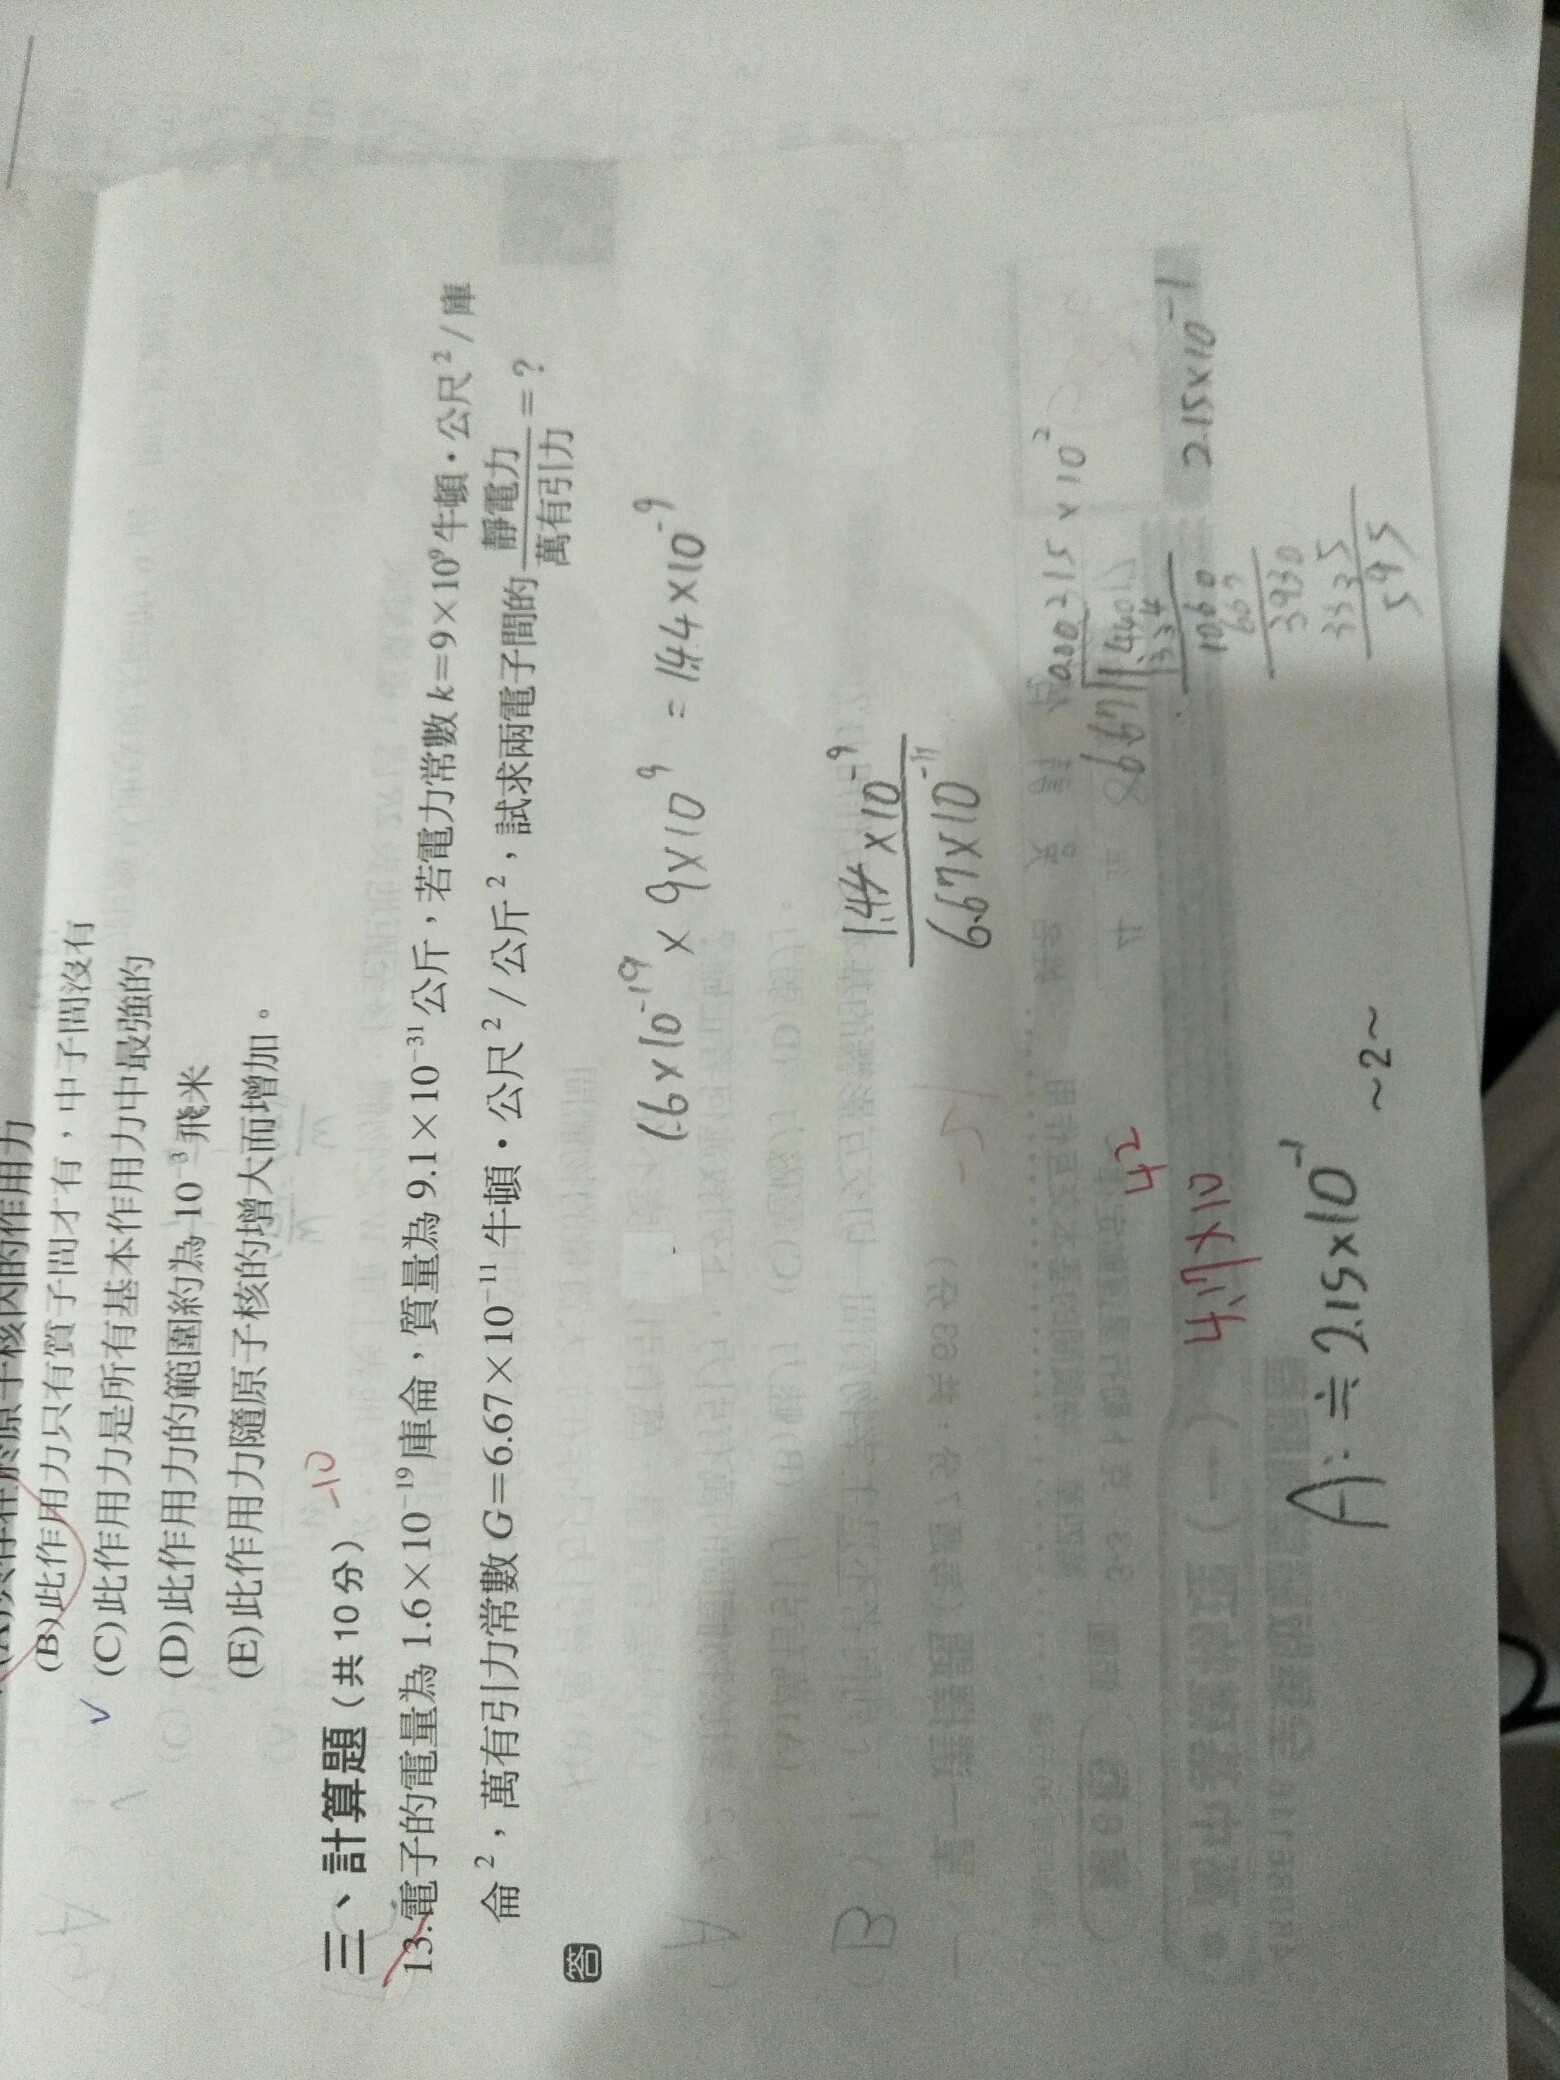 (B)此作用力只有質子間才有，中子間沒有
(C)此作用力是所有基本作用力中最強的
(D)此作用力的範圍約為 10⁻³ 飛米
(E)此作用力隨原子核的增大而增加。
三、計算題（共 10 分） -10
13.電子的電量為 1.6×10⁻¹⁹ 庫侖，質量為 9.1×10⁻³¹ 公斤，若電力常數 k=9×10⁹ 牛頓・公尺²/庫
侖²，萬有引力常數 G=6.67×10⁻¹¹ 牛頓・公尺²/公斤²，試求兩電子間的 靜電力/萬有引力 =？
答
1.6×10⁻¹⁹ × 9×10⁹ = 14.4×10⁻⁹
1.44×10⁻⁹
6.67×10⁻¹¹
0.00215×10²
667
1334
1060
667
3930
3335
595
2.15×10⁻¹
4.17×10⁴²
A: ≒ 2.15×10⁻¹
~2~